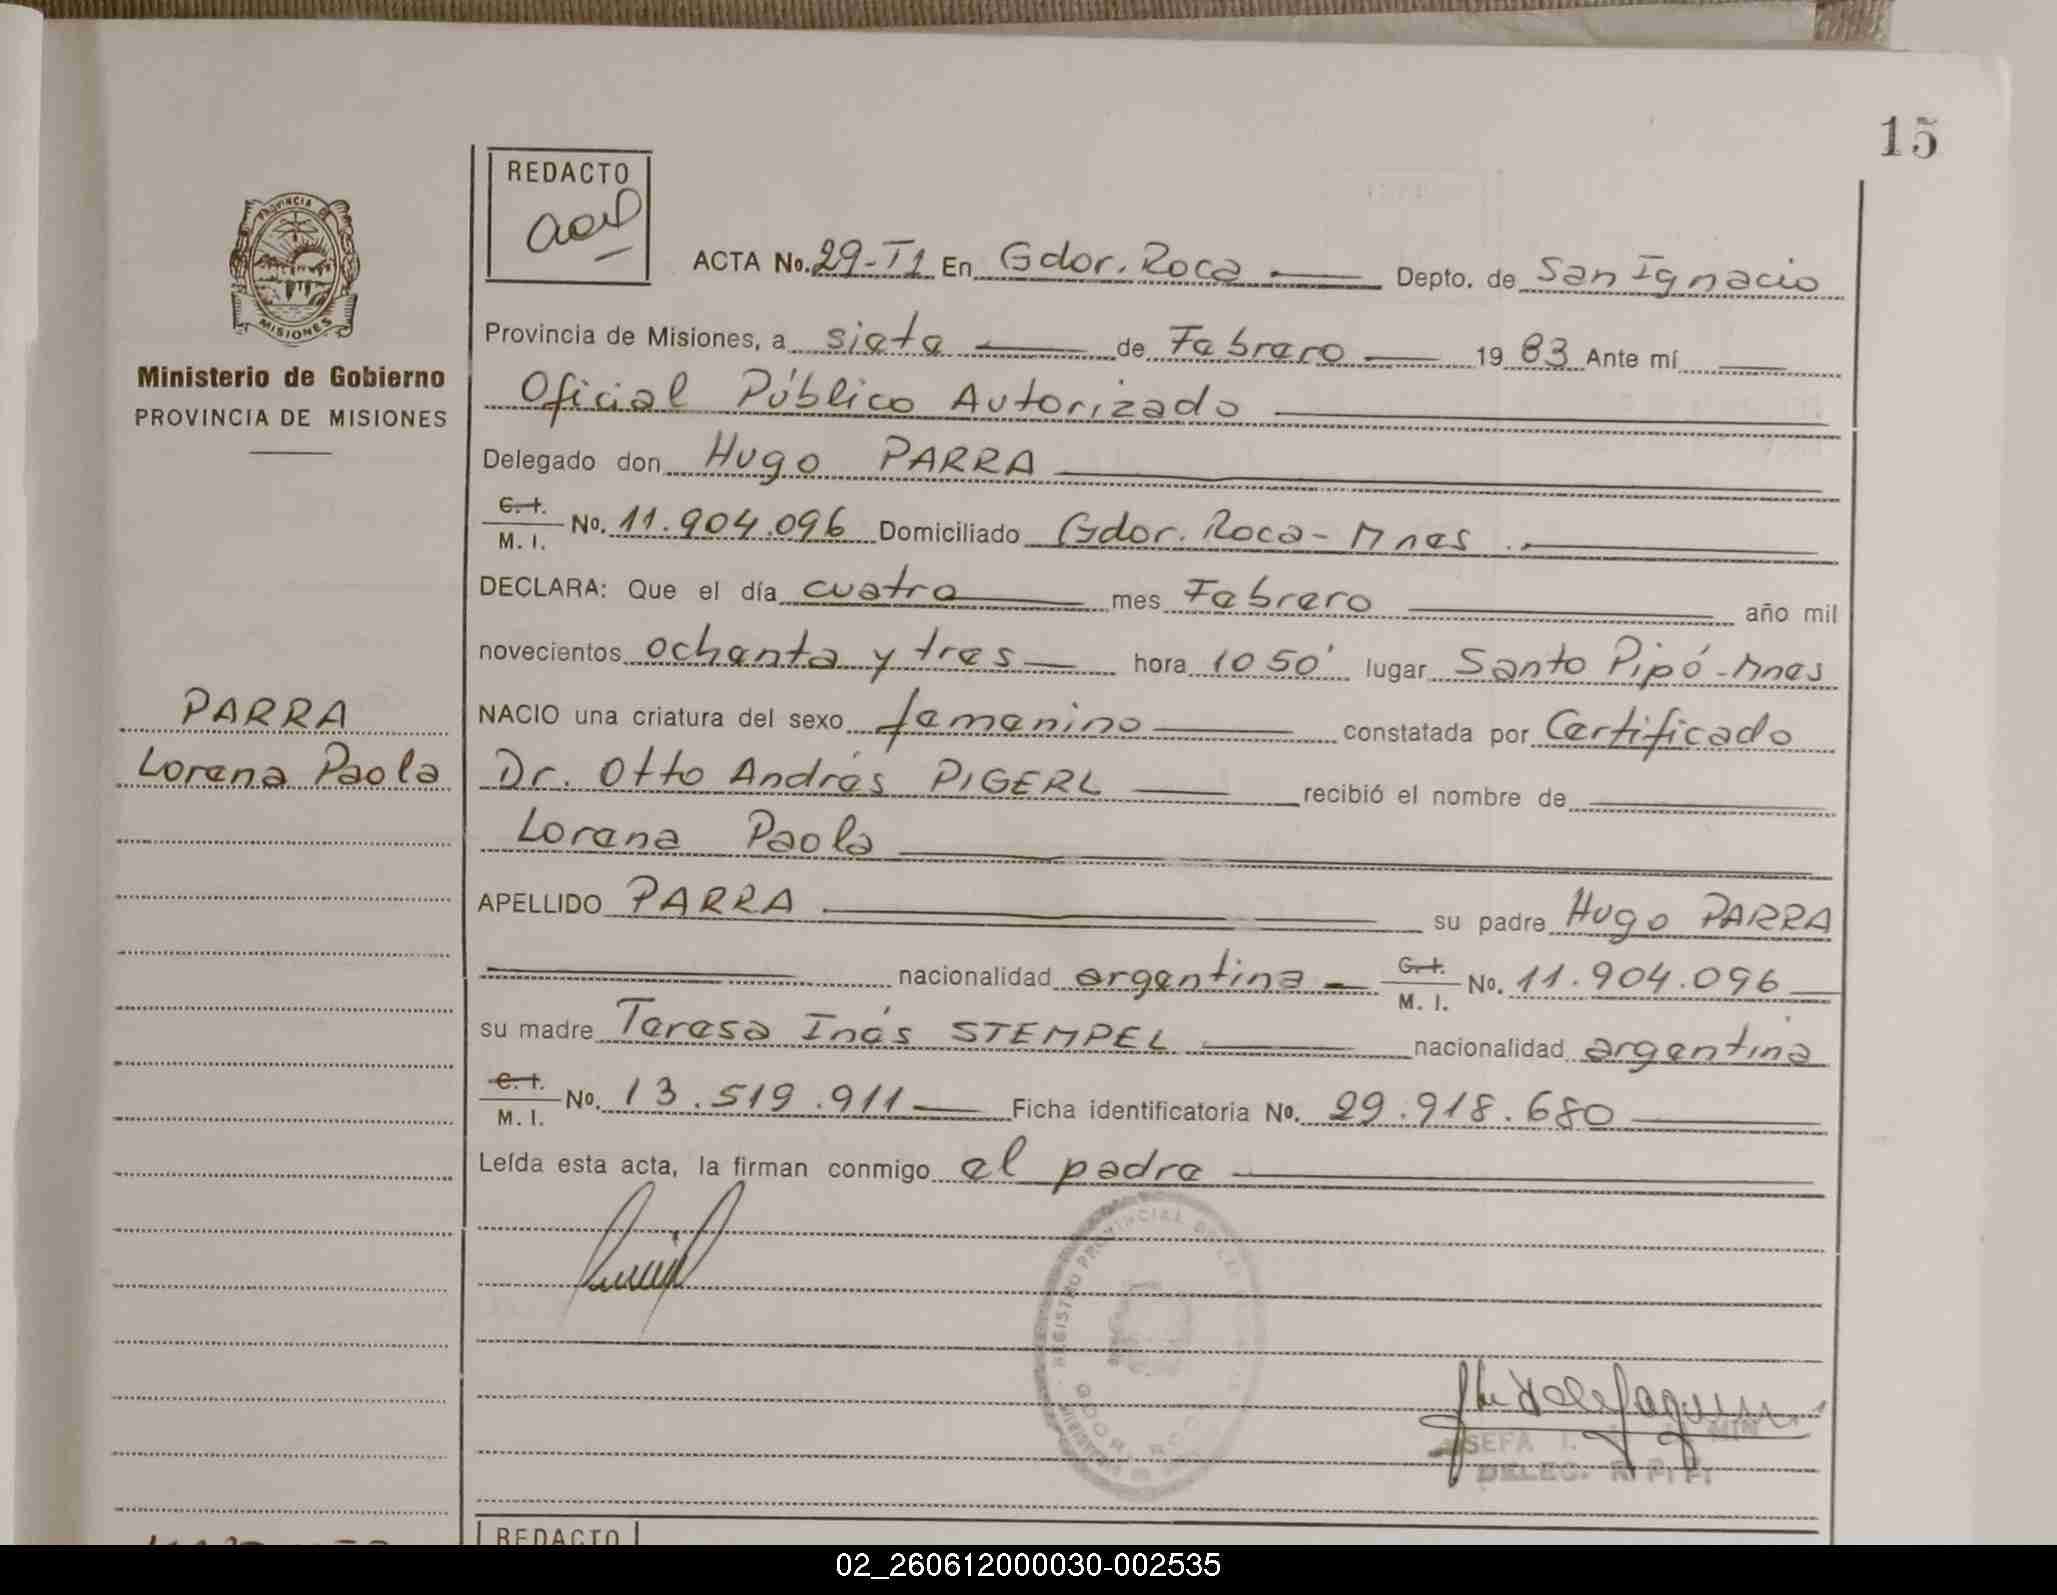 15
REDACTO
ACTA No. 29-T1 En Gdor. Roca Depto. de San Ignacio
PROVINCIA DE
MISIONES
Ministerio de Gobierno
PROVINCIA DE MISIONES
Provincia de Misiones, a siete de Febrero 19 83 Ante mí
Oficial Público Autorizado
Delegado don Hugo PARRA
C. I.
M. I. No. 11.904.096 Domiciliado Gdor. Roca - Mnes
DECLARA: Que el día cuatro mes Febrero año mil
novecientos ochenta y tres hora 10 50' lugar Santo Pipó - Mnes
PARRA
Lorena Paola
NACIO una criatura del sexo femenino constatada por Certificado
Dr. Otto Andrés PIGERL recibió el nombre de
Lorena Paola
APELLIDO PARRA su padre Hugo PARRA
nacionalidad argentina C. I. M. I. No. 11.904.096
su madre Teresa Inés STEMPEL nacionalidad argentina
C. I.
M. I. No. 13.519.911 Ficha identificatoria No. 29.918.680
Leída esta acta, la firman conmigo el padre
REGISTRO PROVINCIAL DE LAS
GDOR. ROCA
DELEG. R. P. P.
REDACTO
02_260612000030-002535